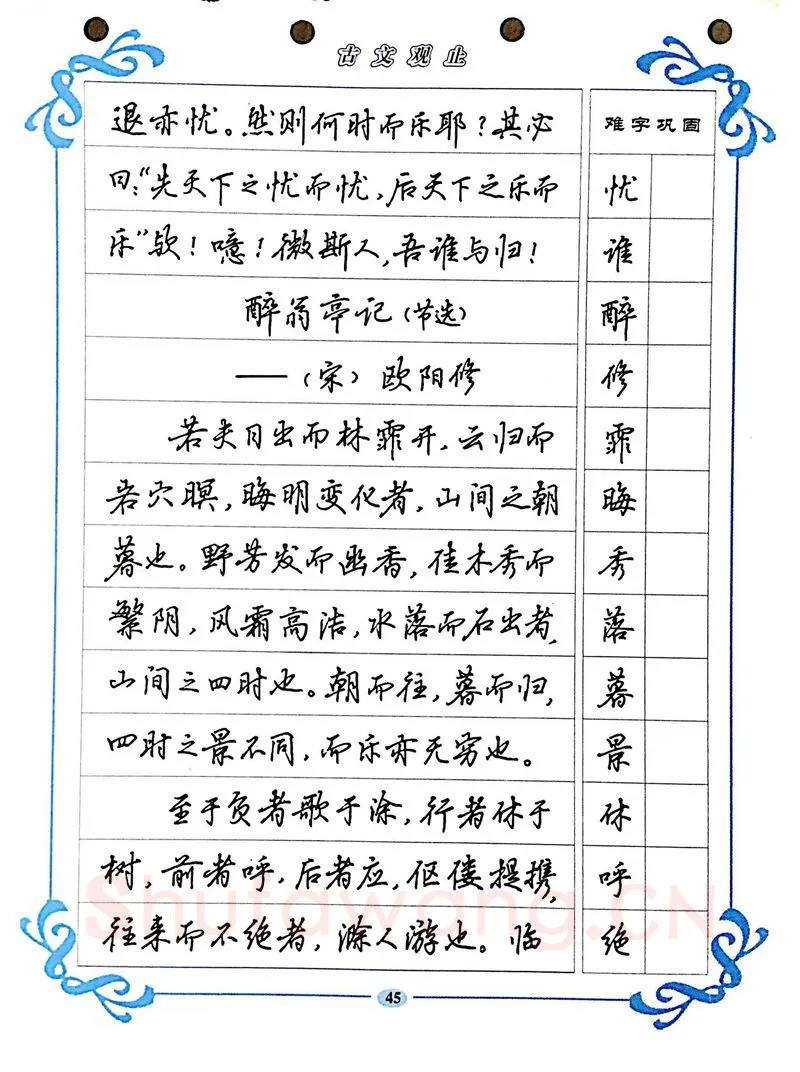 古文观止
退亦忧。然则何时而乐耶？其必
曰：“先天下之忧而忧，后天下之乐而
乐”欤！噫！微斯人，吾谁与归！
醉翁亭记（节选）
——（宋）欧阳修
若夫日出而林霏开，云归而
岩穴暝，晦明变化者，山间之朝
暮也。野芳发而幽香，佳木秀而
繁阴，风霜高洁，水落而石出者，
山间之四时也。朝而往，暮而归，
四时之景不同，而乐亦无穷也。
至于负者歌于涂，行者休于
树，前者呼，后者应，伛偻提携，
往来而不绝者，滁人游也。临
难字巩固
忧
谁
醉
修
霏
晦
秀
落
暮
景
休
呼
绝
Shufawang.CN
45